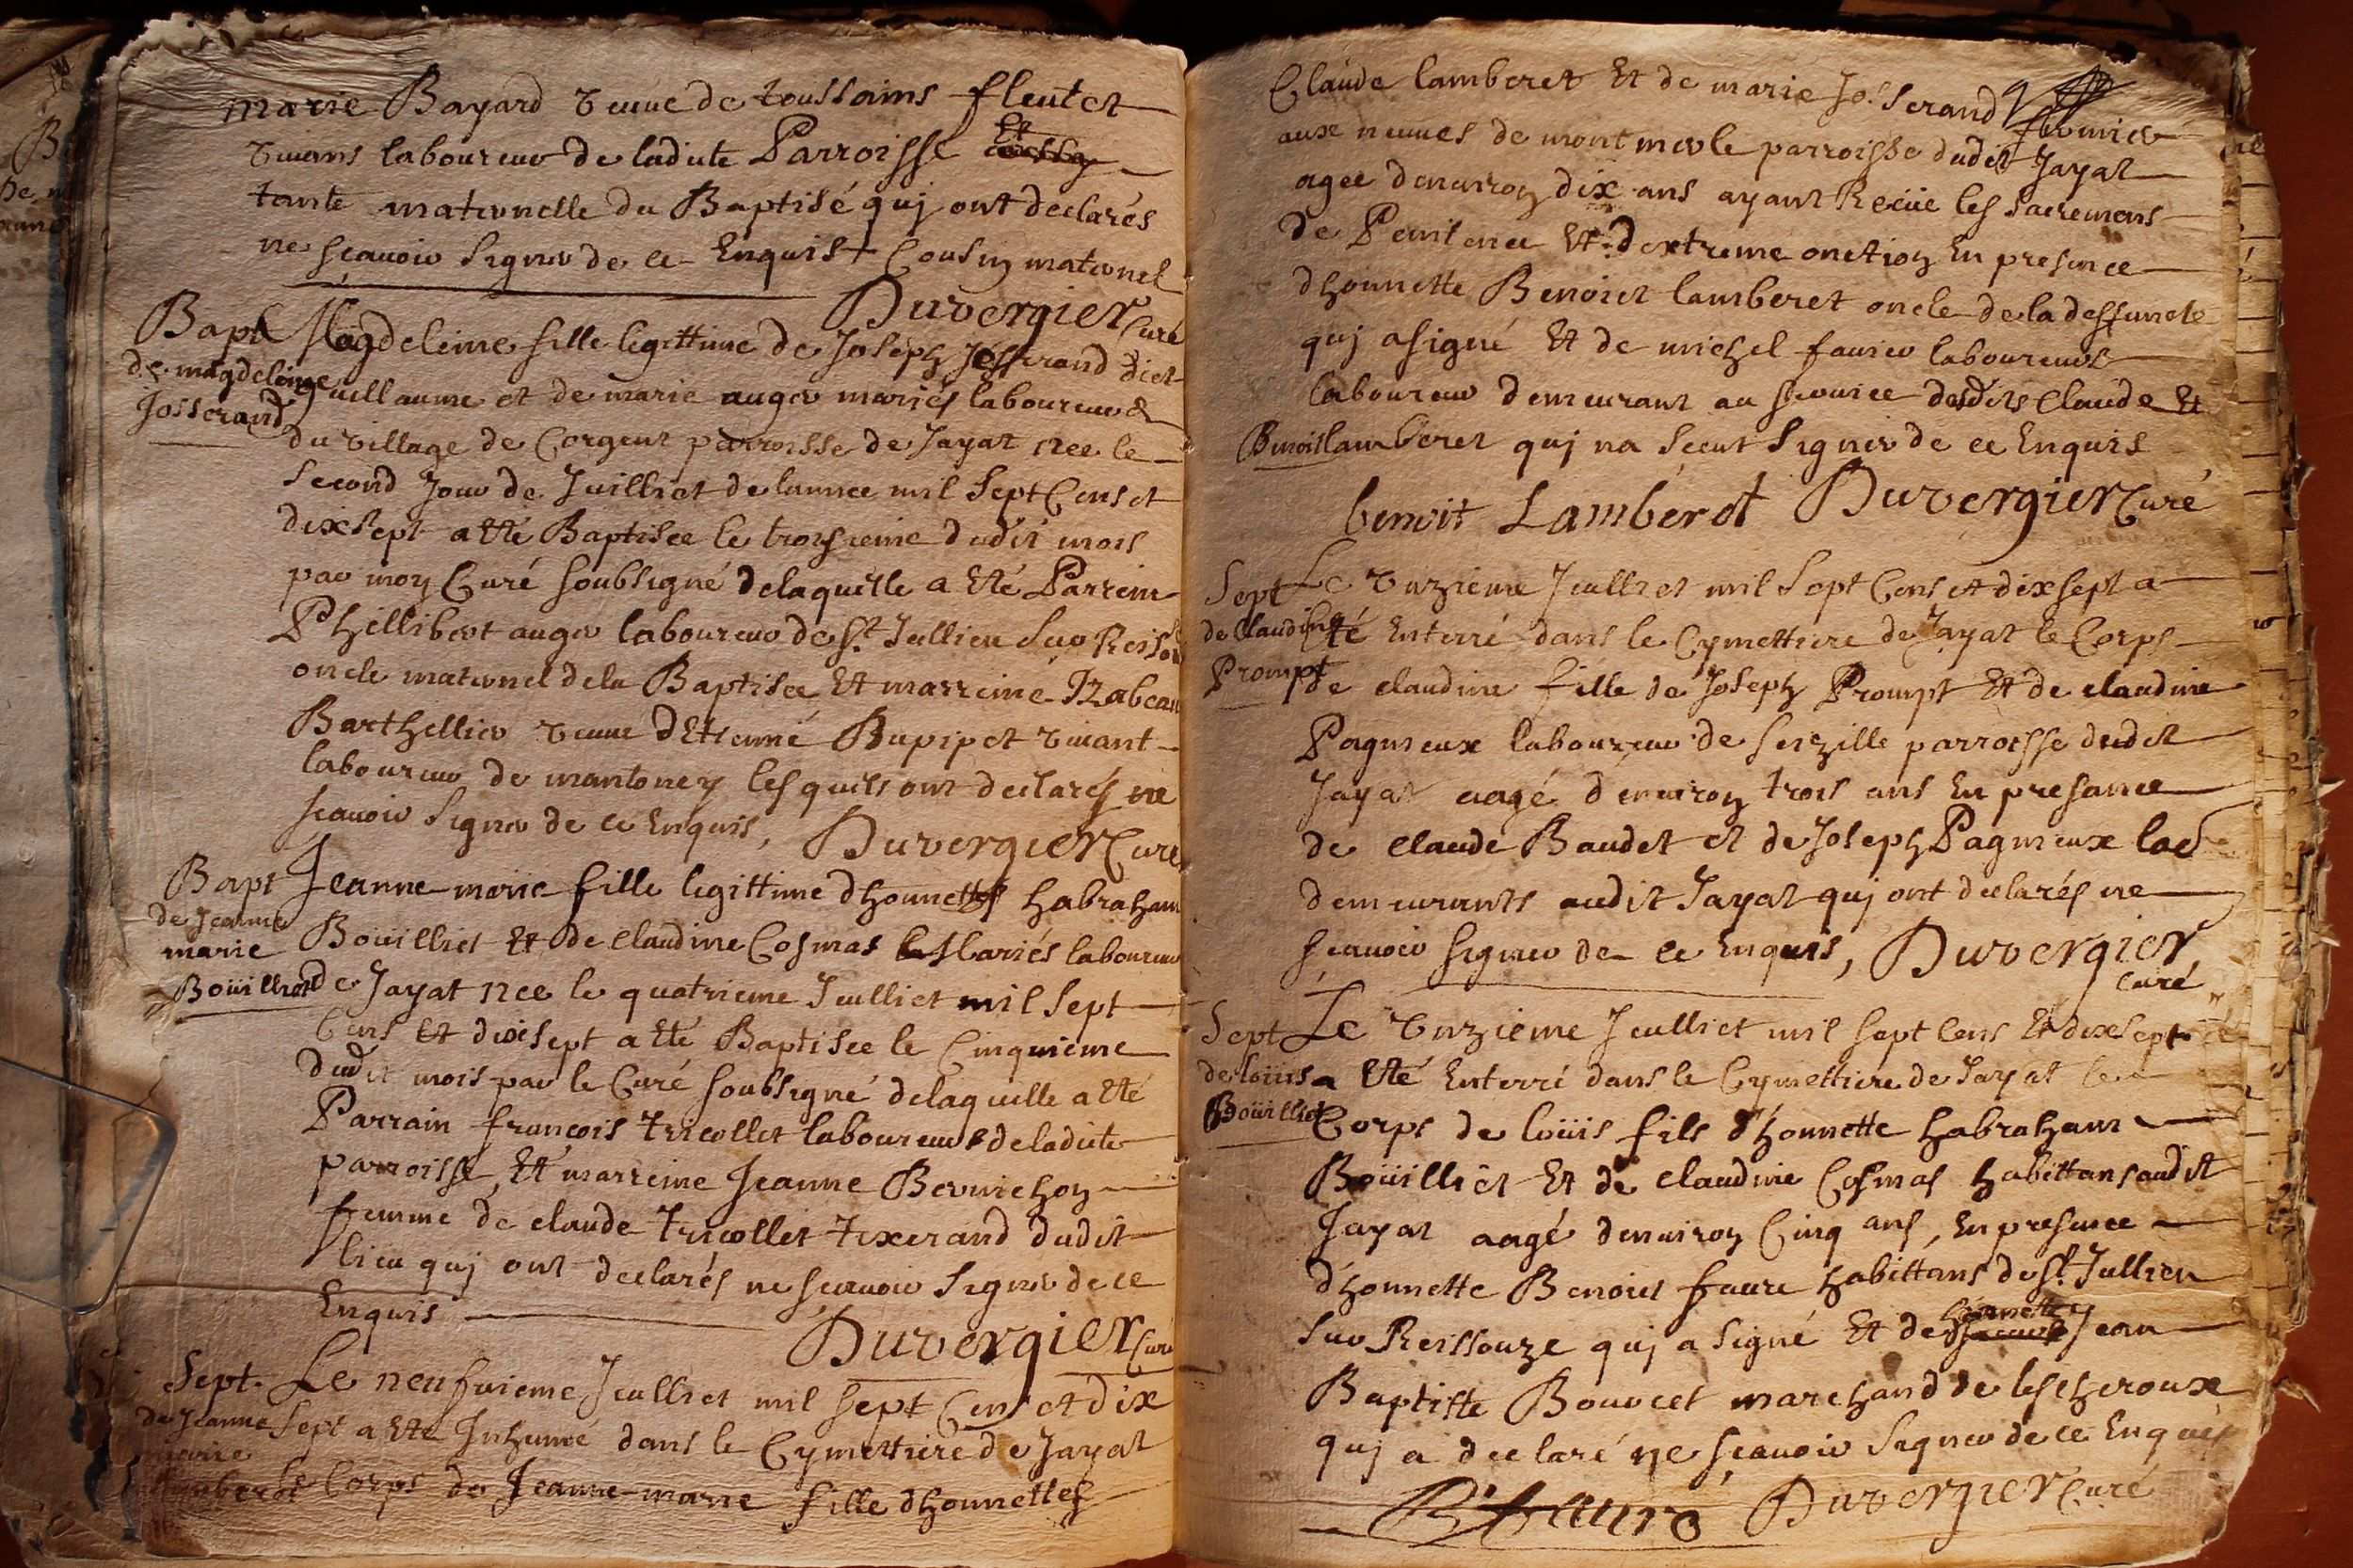 marie Bayard veuue de toussains fleutet
viuans laboureur de ladite Parroisse Et
tante maternelle du Baptisé quj ont declarés
ne scauoir signer de ce Enquis + Cousin maternel
Duvergier Curé
Bapt Magdeleine fille legittime de Joseph Josserand dict
de magdeleine guillaume et de marie auger mariés laboureurs
Josserand du village de Corgent parroisse de Jayat née le
second Jour de Juilliet de lannee mil sept Cens et
dixsept a eté Baptisee le troisieme dudit mois
par moy Curé soubsigné delaquelle a Eté Parrein
Phillibert auger laboureur de St Jullien sur Reisso
oncle maternel dela Baptisee Et marreine Izabeau
Barthellier veuue dEtienne Bupipet viuant
laboureur de mantoney lesquels ont declarés ne
scauoir signer de ce Enquis, Duvergier Curé
Bapt Jeanne marie fille legittime dhonnettes habraham
de Jeanne
marie Boüilliet Et de claudine Cosmas Mariés laboureur
Boüilliet de Jayat née le quatrieme Juilliet mil sept
Cens Et dixsept a Eté Baptisee le Cinquieme
dudit mois par le Curé soubsigné delaquelle a Eté
Parrain françois tricollet laboureur deladite
parroisse, Et marreine Jeanne Bernichon
femme de claude tricollet texerand dudit
lieu quj ont declarés ne scauoir signer de ce
Enquis Duvergier Curé
Sept. Le neufuieme Juilliet mil sept Cens et dix
de Jeanne sept a Eté Inhumé dans le Cymettiere de Jayat
marie
lamberet le Corps de Jeanne-marie fille dhonnettes
Claude lamberet Et de marie Josserand
aux neuues de montmerle parroisse dudit Jayat
agee denuiron dix ans ayant Receüe les sacremens
de Penitence Et dextreme onction En presence
dhonnette Benoict lamberet oncle de la deffuncte
quj a signé Et de michel faurier laboureur
laboureur demeurant au seruice desdits Claude Et
Benoist lamberet quj na sceut signer de ce Enquis
benoit Lamberet Duvergier Curé
Sept Le unzieme Juilliet mil sept Cens et dixsept a
de Claudine Eté Enterré dans le Cymettiere de Jayat le Corps
Prompt de claudine fille de Joseph Prompt Et de claudine
Pagneux laboureur de seizille parroisse dudit
Jayat aagé denuiron trois ans En presance
de claude Baudet et de Joseph Pagneux
demeurants audit Jayat quj ont declarés ne
scauoir signer de ce Enquis, Duvergier
Curé
Sept Le unzieme Juilliet mil sept Cens Et dixsept
de loüis a Eté Enterré dans le Cymettiere de Jayat le
Boüilliet Corps de loüis fils d'honnette habraham
Boüilliet Et de claudine Cosmas habittans audit
Jayat aagé denuiron Cinq ans, En presence
d'honnette Benoict faure habittans de St Jullien
sur Reissouze quj a signé Et de honnette Jean
Baptiste Bouvet marchand de lescheroux
quj a declaré ne scauoir signer de ce Enquis
B. faure Duvergier Curé